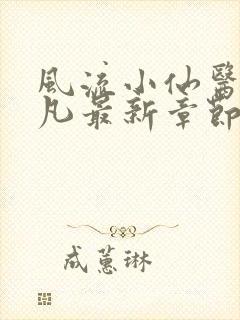 風流小仙醫
凡最新章節
成蕙琳